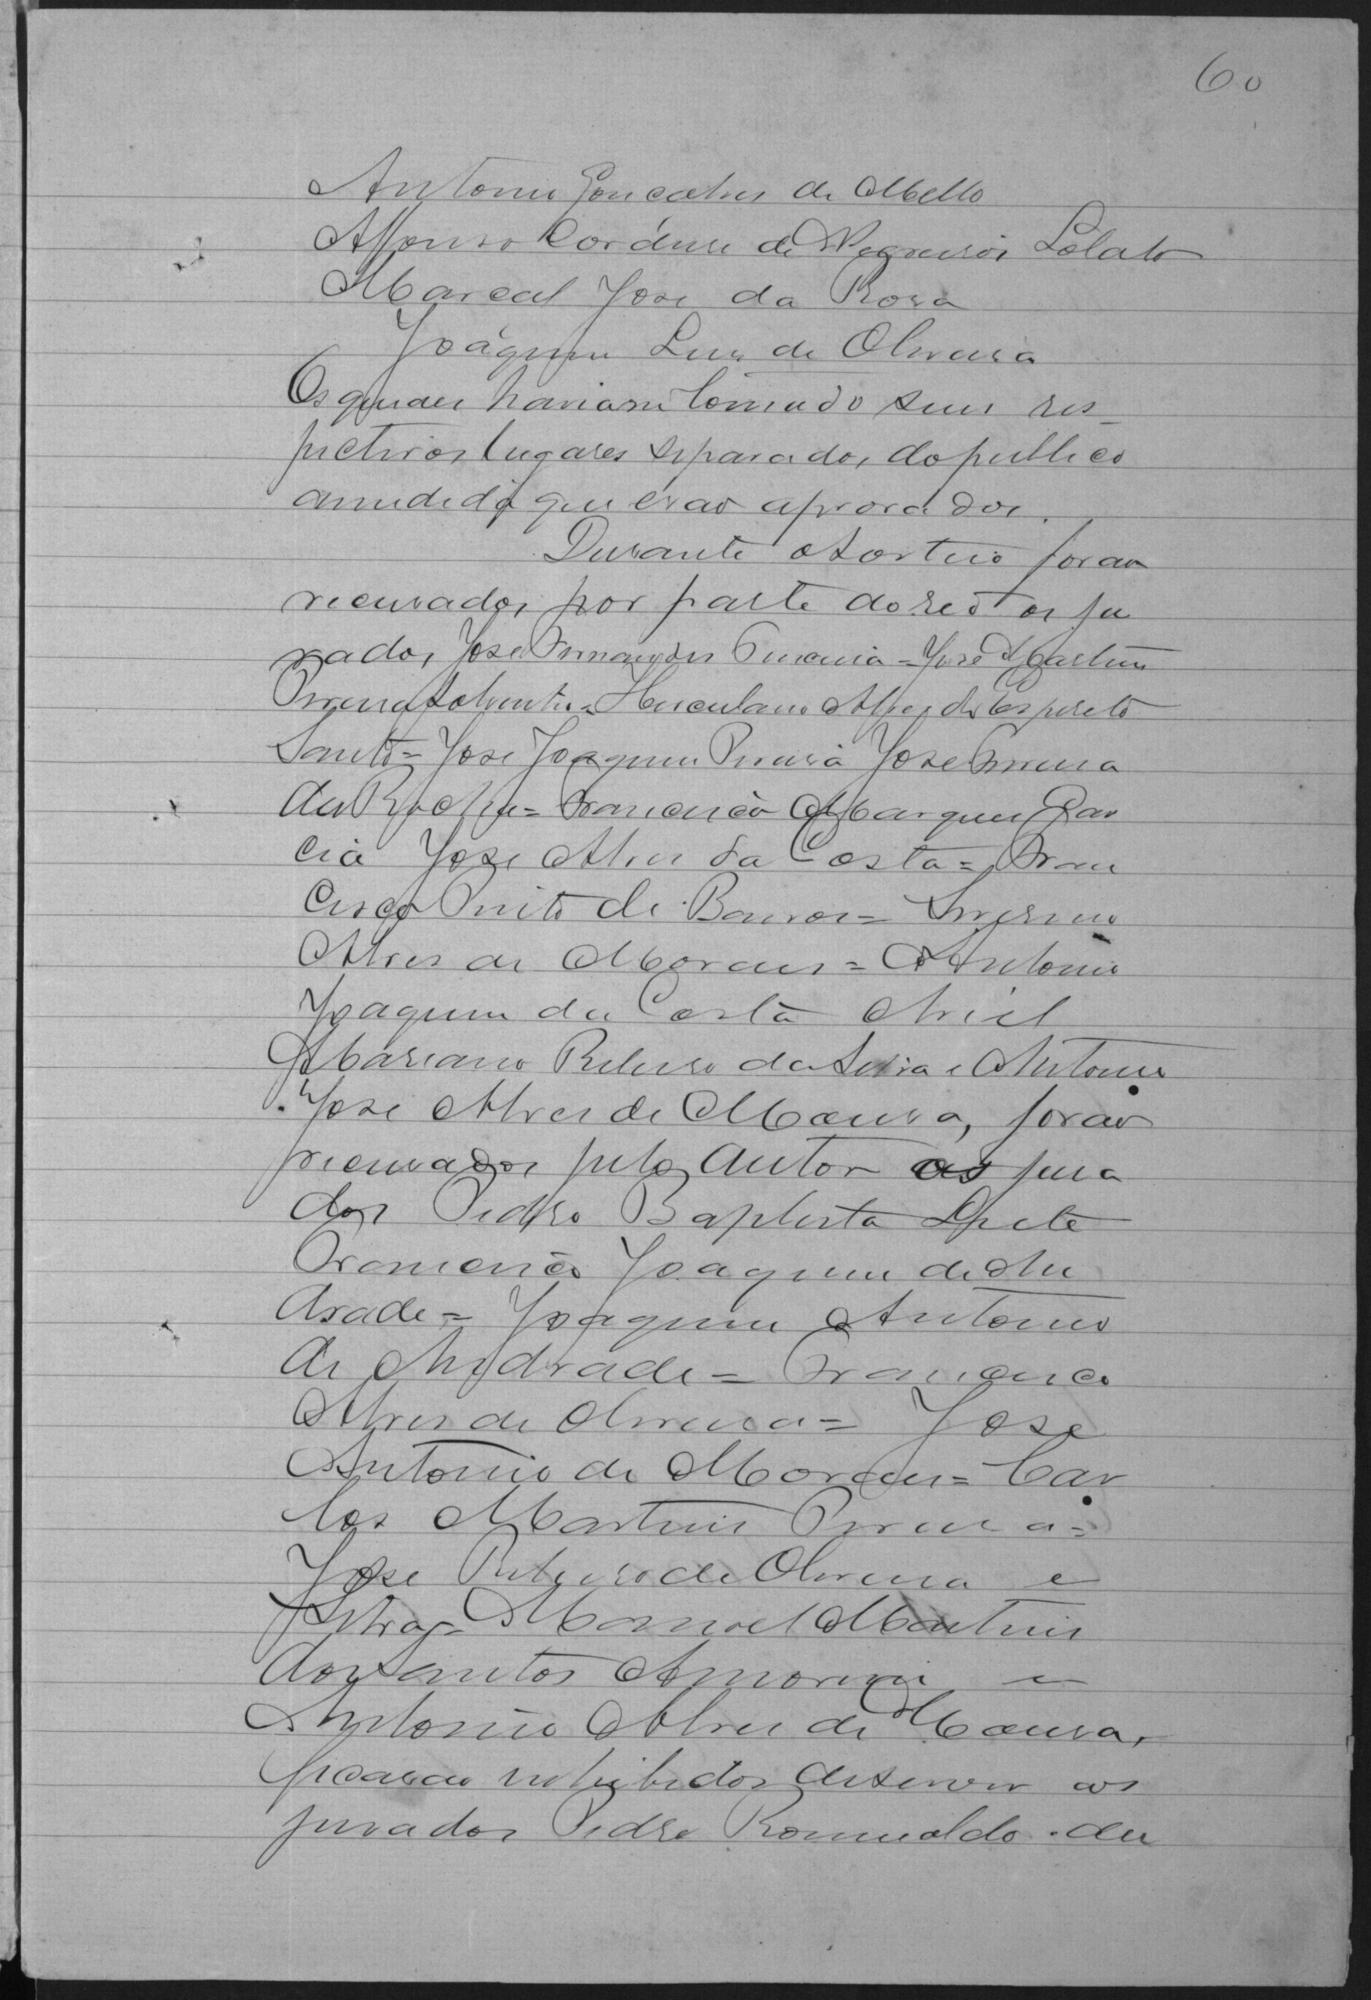 60
Antonio Goncalves de Mello
Affonso Cordeiro de Negreiros Lobato
Marcal Jose da Rosa
Joáquim Luis de Oliveira
Os quaes haviam tomado seus res_
pectivos lugares separados do publico
amedida que erao aprovados.
Durante o sorteio forao
recusados por parte do reo os ju
rados Jose Fernandes = Jose Martins
Pereira = Herculano Alves do Espirito
Santo = Jose Joaquim Pereira Jose Pereira
da Rocha = Francisco Marques Gar
cia Jose Alves da Costa = Fran
cisco Pinto de Barros = Severino
Alves de Moraes = Antonio
Joaquim da Costa Abril
Mariano Ribeiro da Silva e Antonio
Jose Alves de Moura, forao
recusados pelo autor os jura
dos Pedro Baptista Leite
Francisco Joaquim de An
drade = Joaquim Antonio
de Andrade = Francisco
Alves de Oliveira = Jose
Antonio de Moraes = Car
los Martins Pereira =
Jose Ribeiro de Oliveira e
Manoel Martins
dos Santos Amorim e
Antonio Alves de Moura,
ficarao inhibidos de servir os
jurados Pedro Romualdo da